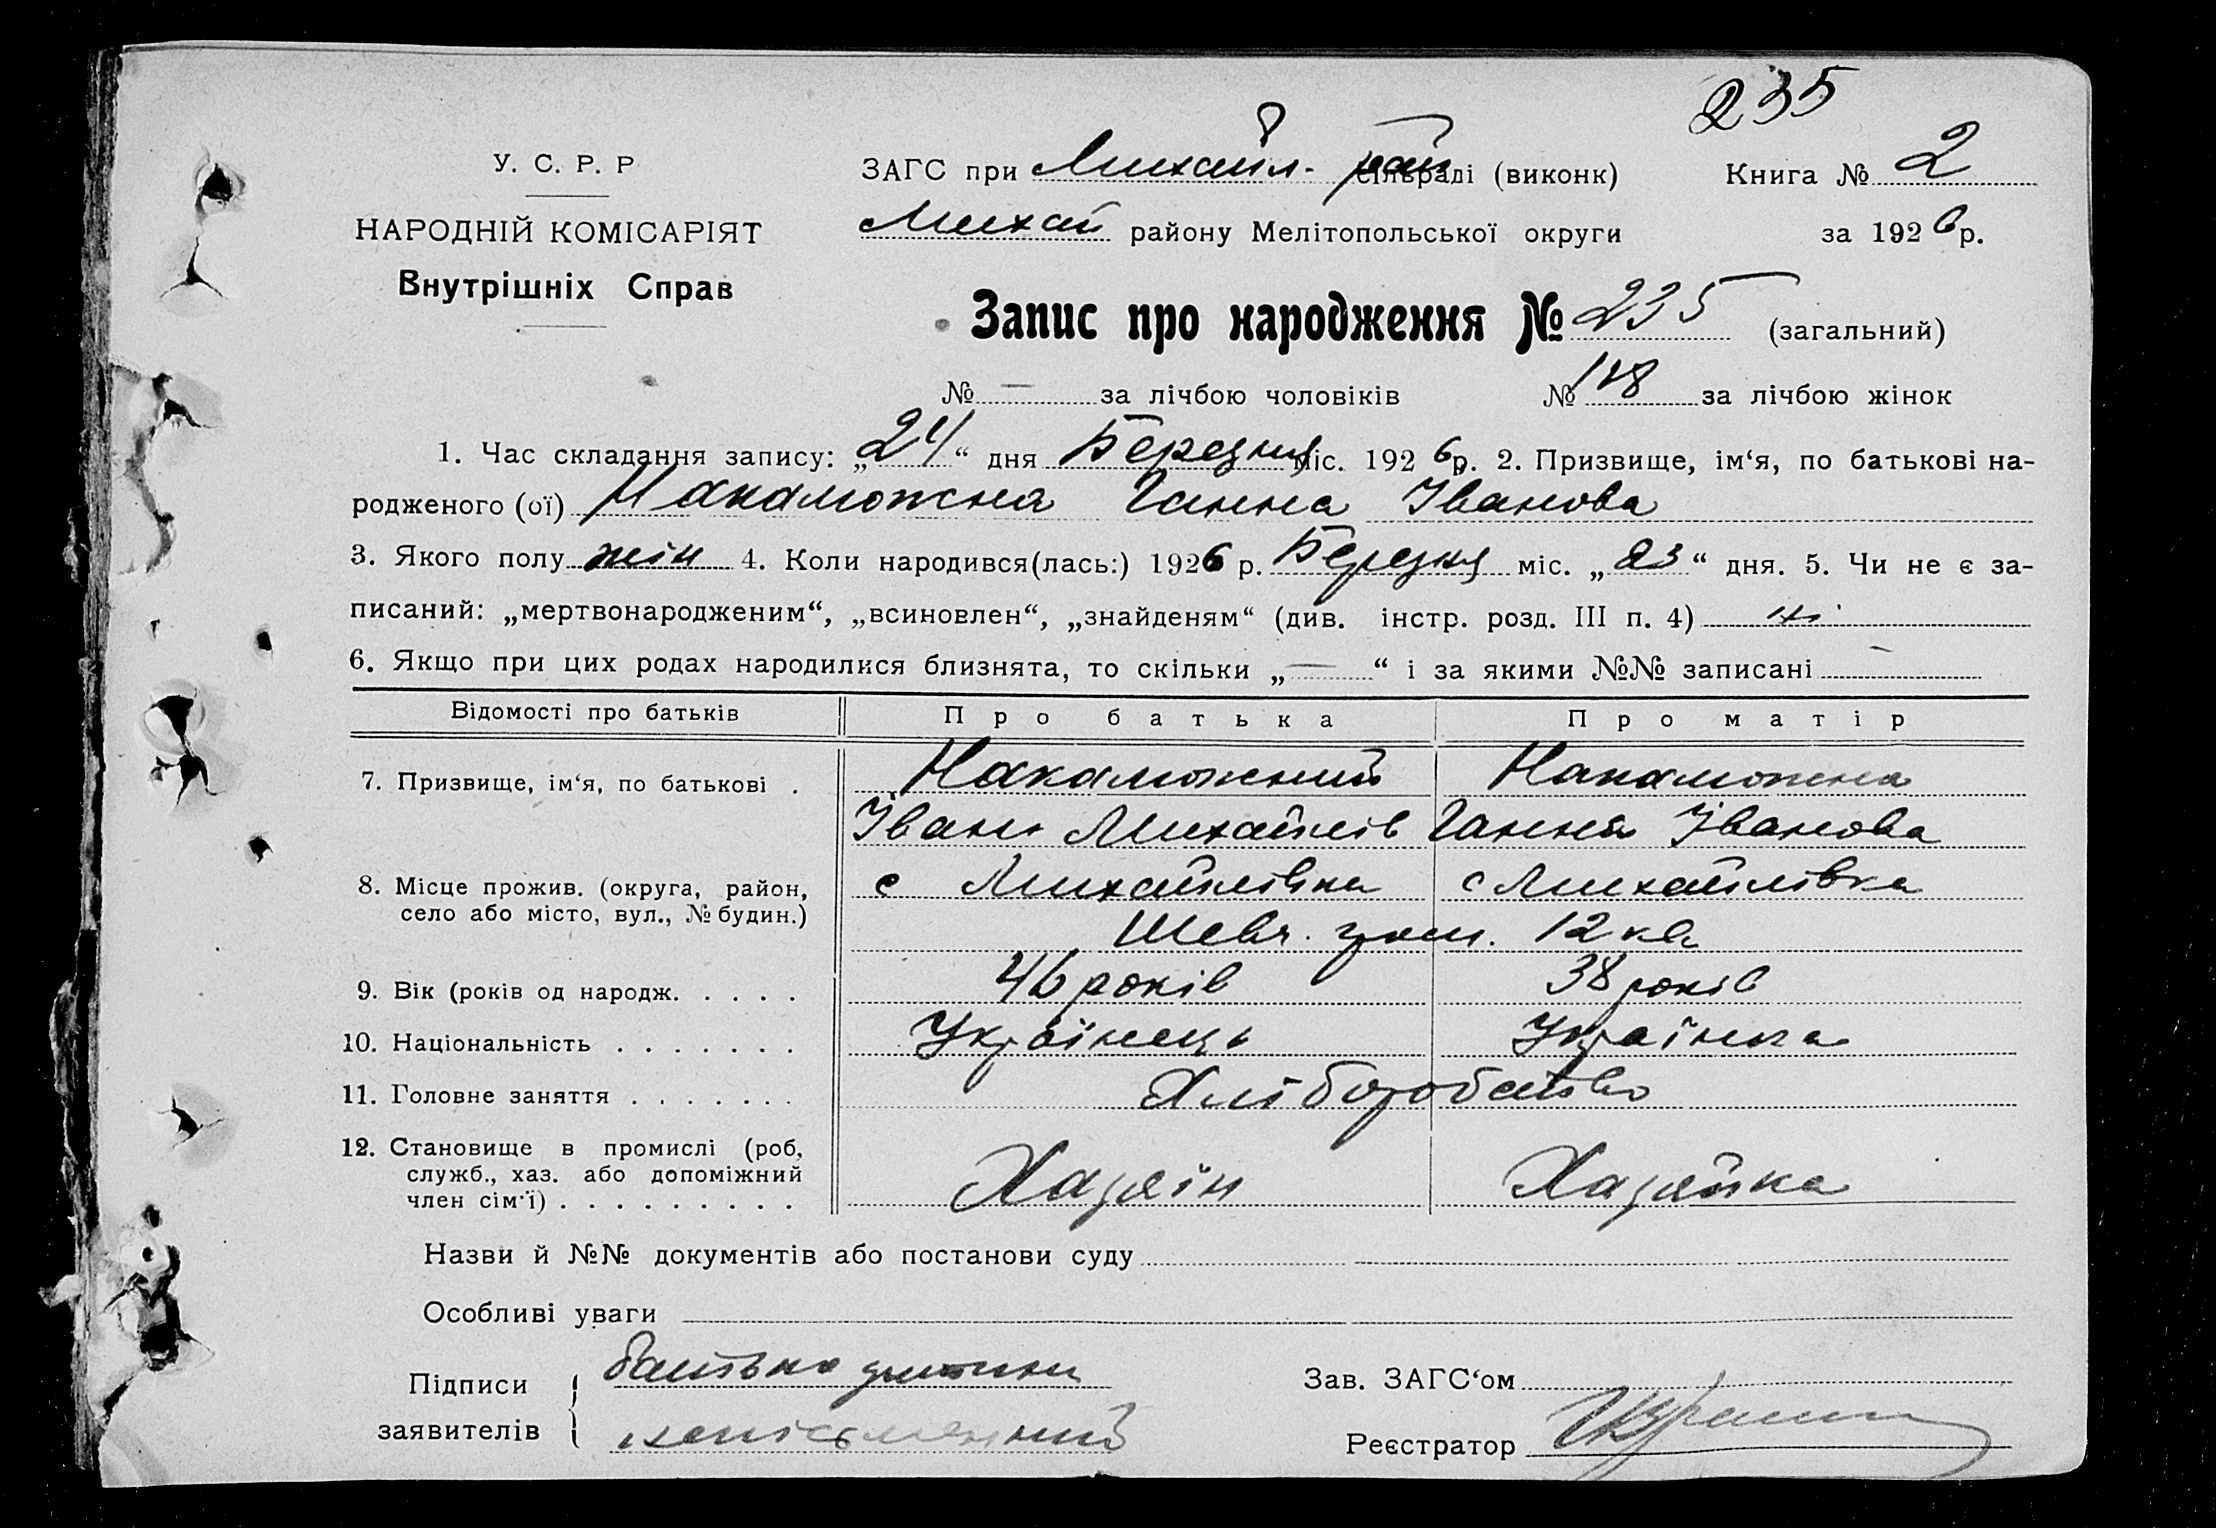 235
У. С. Р. Р
ЗАГС при Михайл. рай сільраді (виконк)
Книга № 2
НАРОДНІЙ КОМІСАРІЯТ
Михай району Мелітопольської округи
за 1926 р.
Внутрішніх Справ
Запис про народження № 235 (загальний)
№ — за лічбою чоловіків № 128 за лічбою жінок
1. Час складання запису: „24“ дня Березня міс. 1926 р. 2. Призвище, ім‘я, по батькові на-
родженого (ої) Накаможна Ганна Іванова
3. Якого полу жін 4. Коли народився(лась:) 1926 р. Березня міс. „23“ дня. 5. Чи не є за-
писаний: „мертвонародженим“, „всиновлен“, „знайденям“ (див. інстр. розд. III п. 4) ні
6. Якщо при цих родах народилися близнята, то скільки „—“ і за якими №№ записані —
Відомості про батьків Про батька Про матір
7. Призвище, ім‘я, по батькові . Накаможний Накаможна
Іван Михайлів Ганна Іванова
8. Місце прожив. (округа, район, с Михайлівка с Михайлівка
село або місто, вул., № будин.) Шевч. гром. 12 кв
9. Вік (років од народж. . . . . 46 років 38 років
10. Національність . . . . . . . Українець Українка
11. Головне заняття . . . . . . . Хліборобство
12. Становище в промислі (роб,
служб., хаз. або допоміжний Хазяїн Хазяйка
член сім‘ї) . . . . . . . . .
Назви й №№ документів або постанови суду
Особливі уваги
Підписи батько дитини Зав. ЗАГС‘ом
заявителів неписьменний Реєстратор